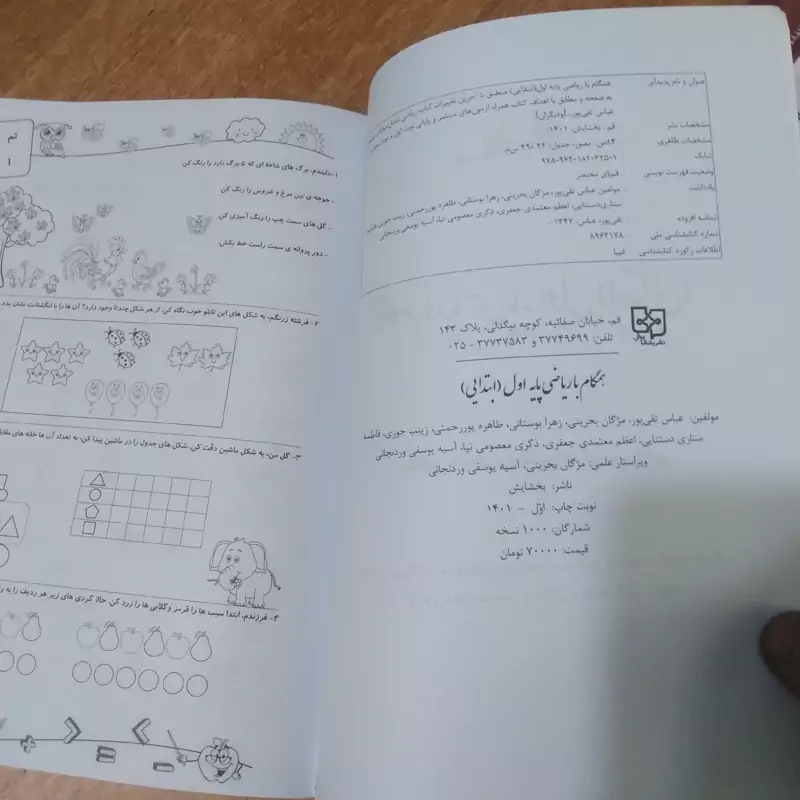 عنوان و نام پدیدآور
همگام با ریاضی پایه اول(ابتدایی) منطبق با آخرین تغییرات کتاب ریاضی
به صفحه و مطابق با اهداف کتاب همراه آزمون‌های مستمر و پایانی نوبت اول و دوم
عباس تقی‌پور، [ودیگران]
مشخصات نشر
قم. بخشایش، ۱۴۰۱
مشخصات ظاهری
۸۴ص. مصور، جدول: ۲۲ × ۲۹س‌م
شابک
۹۷۸-۹۶۴-۱۸۲-۴۳۵-۱
وضعیت فهرست نویسی
فیپای مختصر
یادداشت
مولفین عباس تقی‌پور، مژگان بحرینی، زهرا بوستانی، طاهره پوررحمتی، زینب حوزی،
ستاری‌دستنایی، اعظم معتمدی جعفری، ذکری معصومی نیا، آسیه یوسفی وردنجانی
شناسه افزوده
تقی‌پور، عباس، ۱۳۴۷
شماره کتابشناسی ملی
۸۹۶۲۱۷۸
اطلاعات رکورد کتابشناسی
فیپا
قم، خیابان صفائیه، کوچه بیگدلی، پلاک ۱۴۳
تلفن: ۳۷۷۴۹۶۹۹ و ۳۷۷۳۷۵۸۳ - ۰۲۵
همگام با ریاضی پایه اول (ابتدایی)
مولفین: عباس تقی‌پور، مژگان بحرینی، زهرا بوستانی، طاهره پوررحمتی، زینب حوزی، فاطمه
ستاری دستنایی، اعظم معتمدی جعفری، ذکری معصومی نیا، آسیه یوسفی وردنجانی
ویراستار علمی: مژگان بحرینی، آسیه یوسفی وردنجانی
ناشر: بخشایش
نوبت چاپ: اوّل - ۱۴۰۱
شمارگان: ۱۰۰۰ نسخه
قیمت: ۷۰۰۰۰ تومان
تم
۱
۱- دلبندم، برگ های شاخه ای که ۵ برگ دارد را رنگ کن
- جوجه ی بین مرغ و خروس را رنگ کن.
- گل های سمت چپ را رنگ آمیزی کن.
- دور پروانه ی سمت راست خط بکش.
۲- فرشته زرنگم، به شکل های این تابلو خوب نگاه کن. از هر شکل چندتا وجود دارد؟ آن ها را با انگشتانت نشان بده.
۳- گل من، به شکل ماشین دقّت کن. شکل های جدول را در ماشین پیدا کن، به تعداد آن ها خانه های
۴- فرزندم، ابتدا سیب ها را قرمز و گلابی ها را زرد کن. حالا گردی های زیر هر ردیف را به